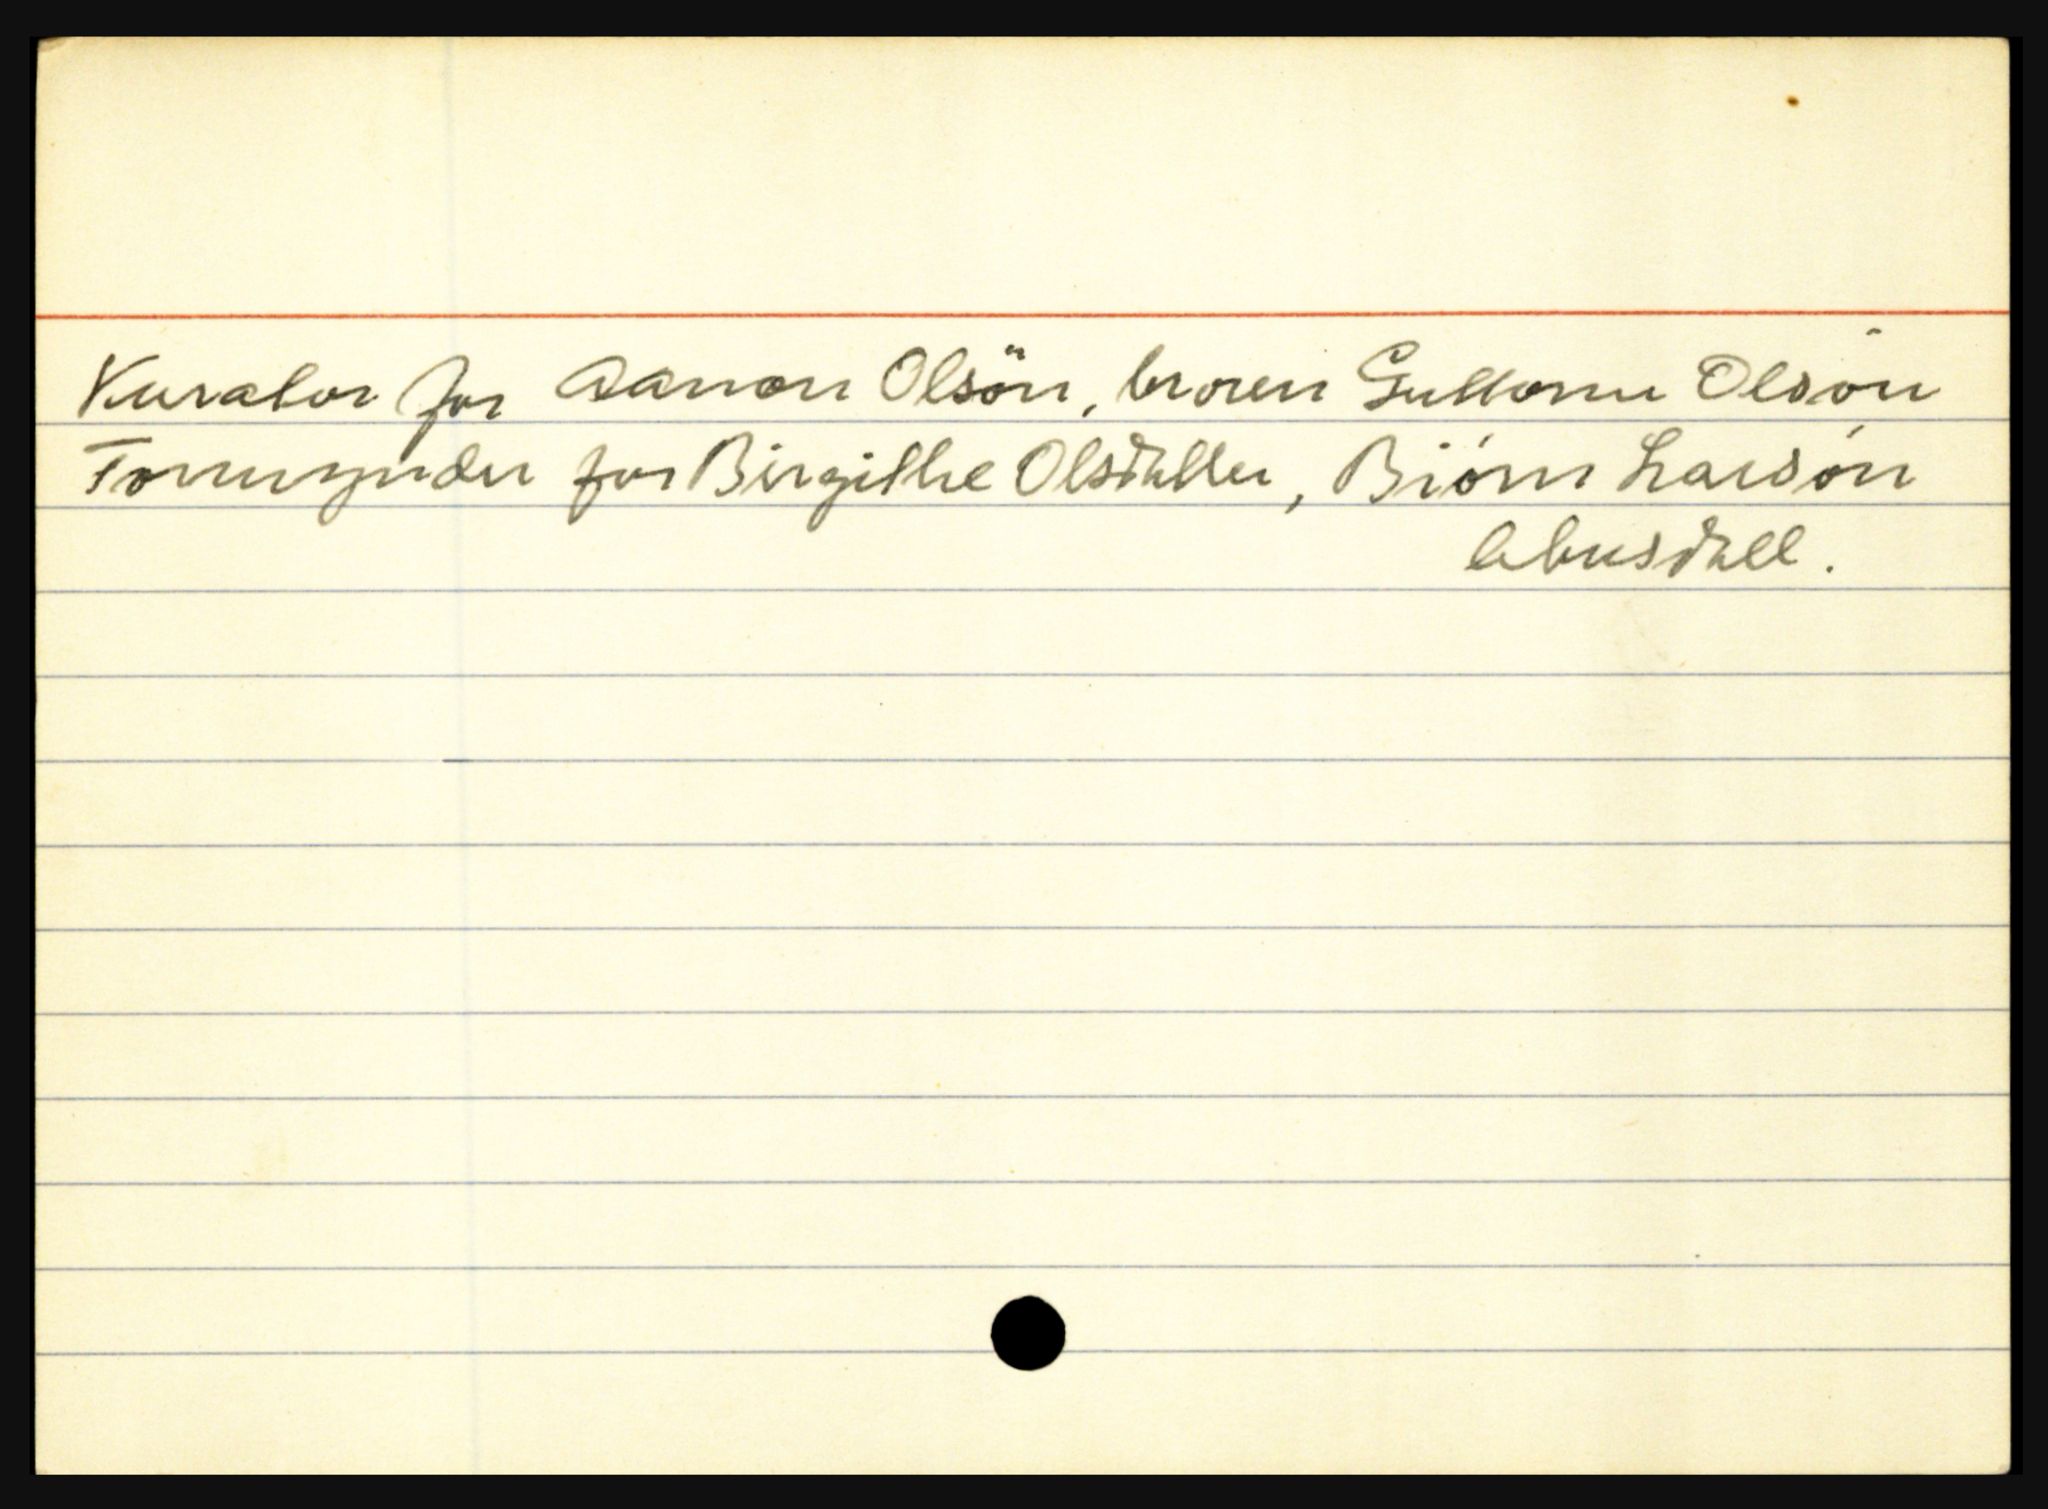 Kurator for Aanon Olsön, broren Guttorm Olsön
Formynder for Birgithe Olsdatter, Biörn Larsön
Abusdall.